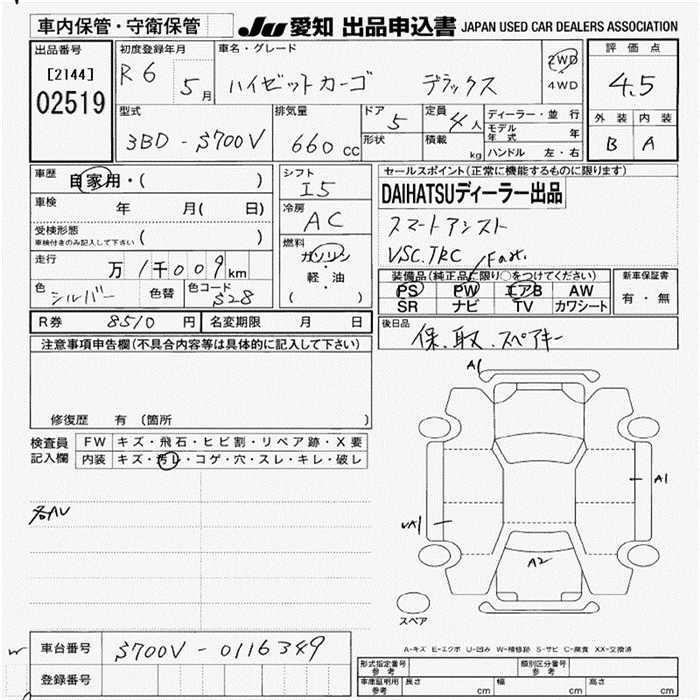 車内保管・守衛保管
JU 愛知 出品申込書 JAPAN USED CAR DEALERS ASSOCIATION
出品番号 初度登録年月 車名・グレード 評価点
[2144] R6 5月 ハイゼットカーゴ デラックス 2WD 4WD 4.5
02519
型式 排気量 ドア 定員 ディーラー・並行 外装 内装
3BD-S700V 660cc 5 4人 モデル年式 年 B A
形状 積載 kg ハンドル 左・右
車歴 自家用・( ) シフト セールスポイント(正常に機能するものに限ります)
I5 DAIHATSUディーラー出品
車検 年 月( 日) 冷房 スマートアシスト
AC
受検形態 車検付きのみ記入して下さい ( ) VSC.TRC
走行 万1千009km 燃料 ガソリン・軽・油 ( )
装備品(純正品に限り○をつけてください) 新車保証書
PS PW エアB AW 有・無
色 シルバー 色替 色コード S28 SR ナビ TV カワシート
R券 8510円 名変期限 月 日 後日品
保.取.スペアキー
注意事項申告欄(不具合内容等は具体的に記入して下さい)
修復歴 有 (箇所 )
検査員記入欄 FW キズ・飛石・ヒビ割・リペア跡・X要
内装 キズ・汚レ・コゲ・穴・スレ・キレ・破レ
A1
A1
A2
スペア
A-キズ E-エクボ U-凹み W-補修跡 S-サビ C-腐食 XX-交換済
車台番号 S700V-0116349
登録番号
形式指定番号 参考 類別区分番号 参考
車庫証明用 参考 長さ cm 幅 cm 高さ cm